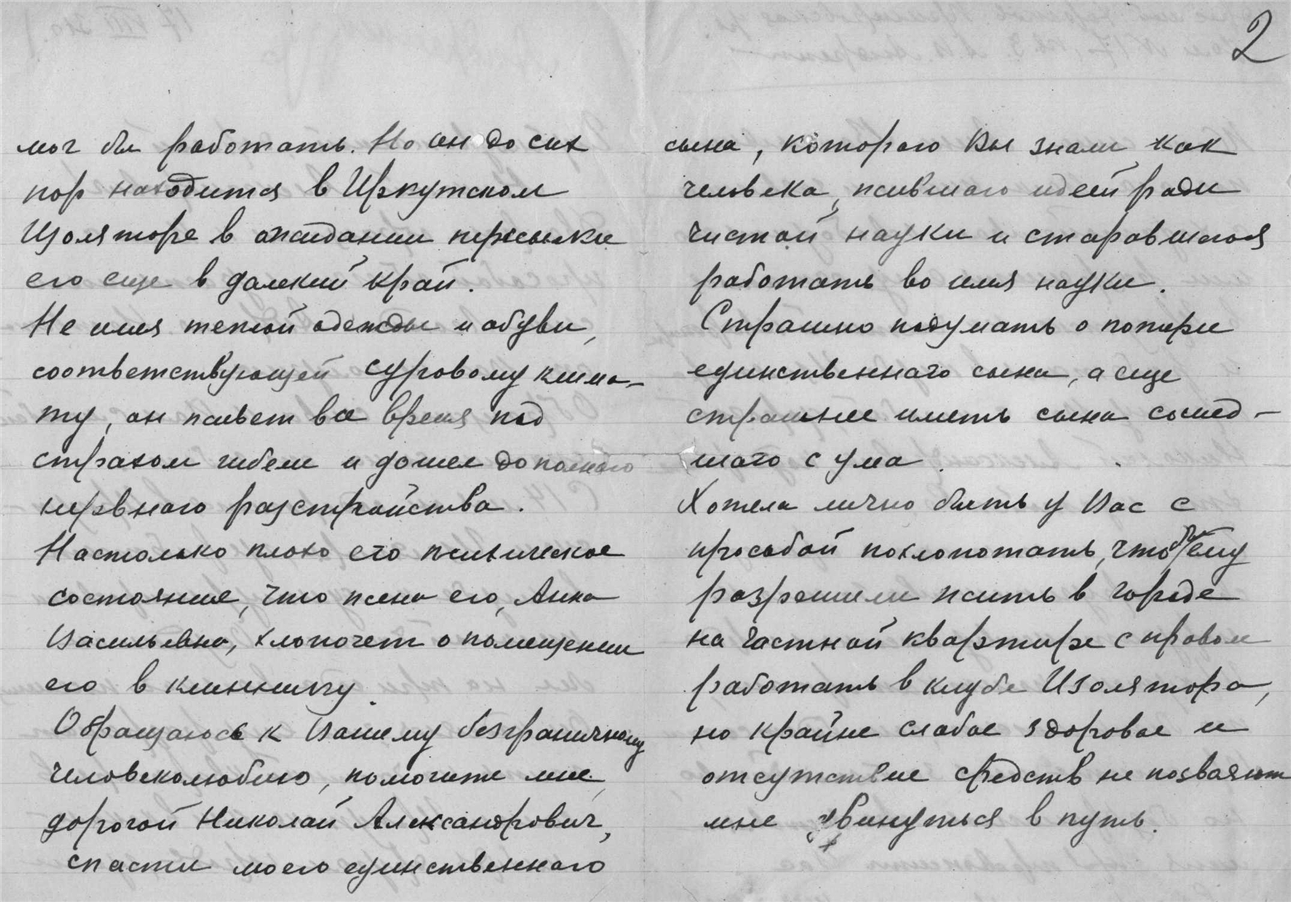 2
мог бы работать. Но он до сих
пор находится в Иркутском
Изоляторе в ожидании пересылки
его еще в далекий край.
Не имея теплой одежды и обуви,
соответствующей суровому клима-
ту, он живет все время под
страхом гибели и дошел до полного
нервного разстройства.
Настолько плохо его психическое
состояние, что жена его, Анна
Васильевна, хлопочет о помещении
его в клинницу
Обращаюсь к Вашему безграничному
человеколюбию, помогите мне,
дорогой Николай Александрович,
спасти моего единственного
сына, которого Вы знали как
человека, жившего идеей ради
чистой науки и старавшегося
работать во имя науки.
Страшно подумать о потери
единственнаго сына, а еще
страшнее иметь сына сошед-
шаго с ума.
Хотела лично быть у Вас с
просьбой похлопотать, чтобы ему
разрешили жить в городе
на частной квартире с правом
работать в клубе Изолятора,
но крайне слабое здоровье и
отсутствие средств не позволяют
мне двинуться в путь.